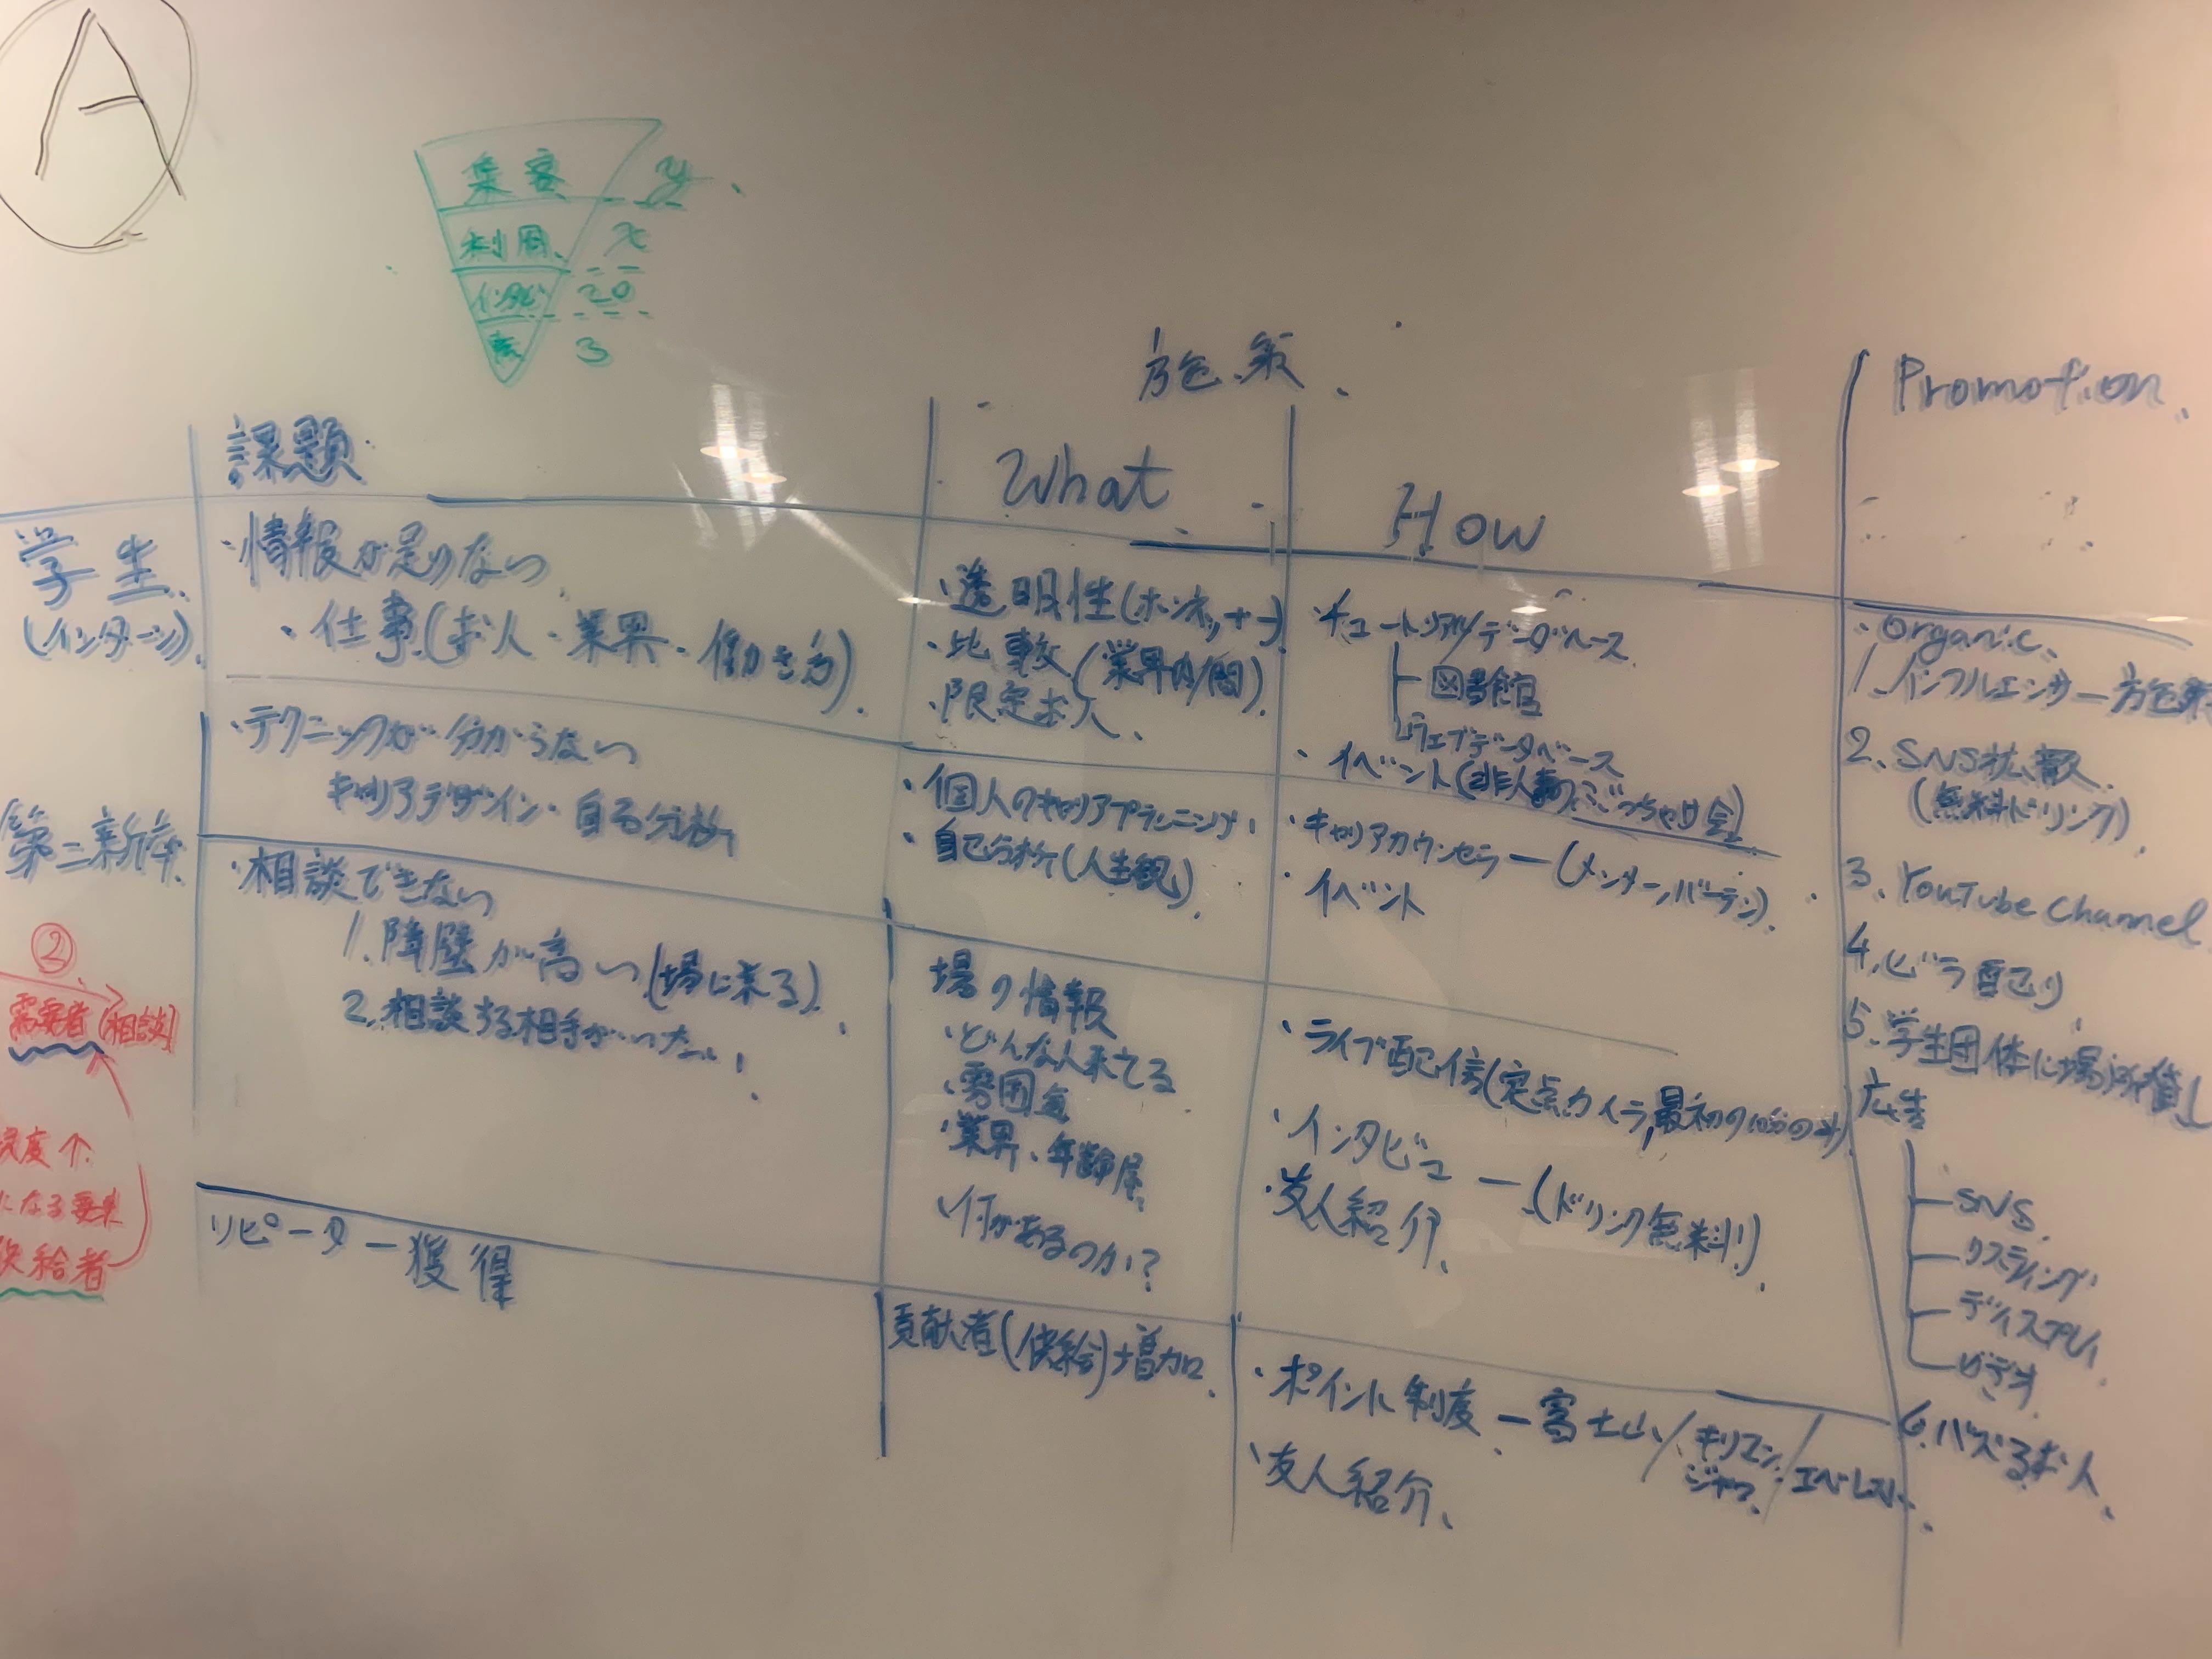 A
集客 y
利用 x
インタビ 20
3
施策
課題
What
How
Promotion
学生
(インターン)
第二新卒
・情報が足りない
・仕事(求人・業界・働き方)
・テクニックが分からない
キャリアデザイン・自己分析
・相談できない
1.障壁が高い(場に来る)
2.相談する相手がいない
リピーター獲得
・透明性(ホンネ
・比較(業界内/間)
・限定求人
・個人のキャリアプランニング
・自己分析(人生観)
場の情報
・どんな人来てる
・雰囲気
・業界、年齢層
・何があるのか?
貢献者(供給)増加
・チュートリアル/データベース
図書館
ウェブデータベース
・イベント(非人事のぶっちゃけ会)
・キャリアカウンセラー(メンター,バーテン)
・イベント
・ライブ配信(定点カメラ,最初の10分のみ)
・インタビュー(ドリンク無料)
・友人紹介
・ポイント制度ー富士山/キリマンジャロ/エベレスト
・友人紹介
・Organic
1.インフルエンサー施策
2、SNS拡散
(無料ドリンク)
3、YouTube Channel
4.ビラ配り
5、学生団体に場所貸し
広告
SNS
リスティング
ディスプレイ
ビデオ
6.バズる求人
②
需要者(相談)
度↑
になる要素
供給者